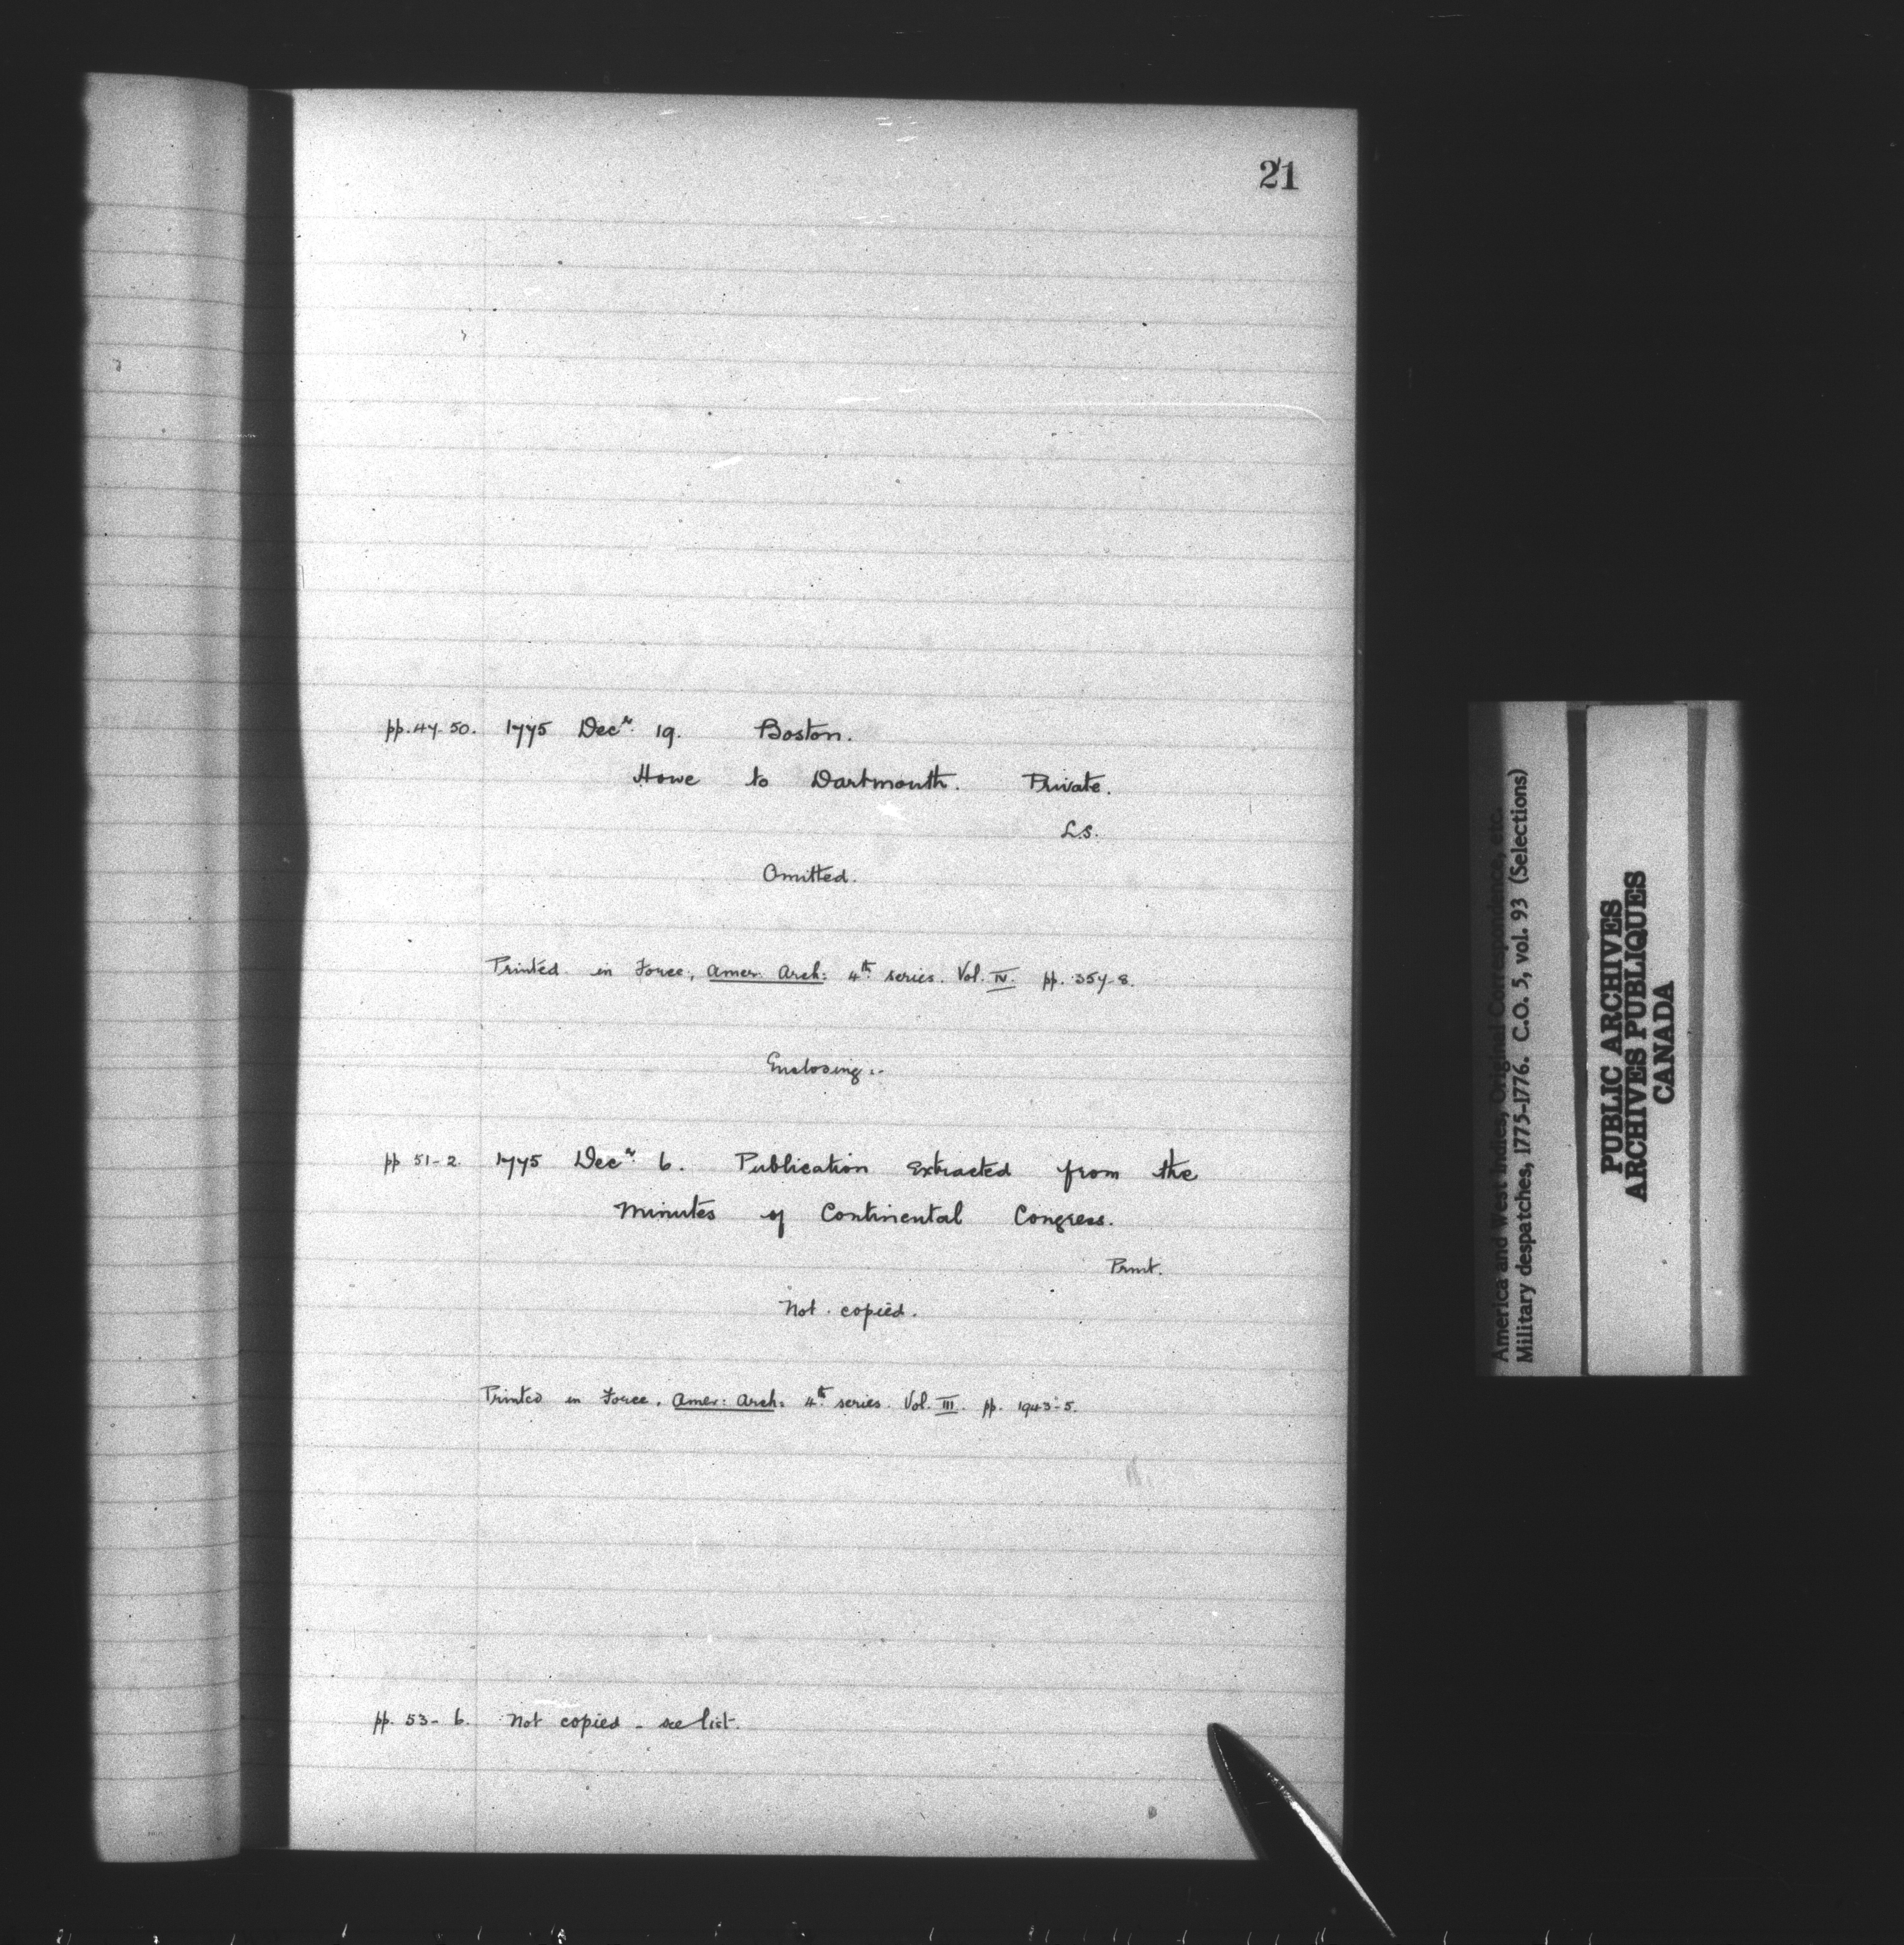 21
pp. 47-50. 1775 Decr. 19. Boston.
Howe to Dartmouth. Private.
L.S.
Omitted.
Printed in Force, Amer. Arch: 4th series. Vol. IV. pp. 357-8.
Enclosing:-
pp 51-2. 1775 Decr. 6. Publication Extracted from the
Minutes of Continental Congress.
Print.
Not copied.
Printed in Force, Amer: Arch: 4th series. Vol. III. pp. 1943-5.
pp. 53-6. Not copied - see list.
America and West Indies, Original Correspondence, etc.
Military despatches, 1775-1776. C.O. 5, vol. 93 (Selections)
PUBLIC ARCHIVES
ARCHIVES PUBLIQUES
CANADA